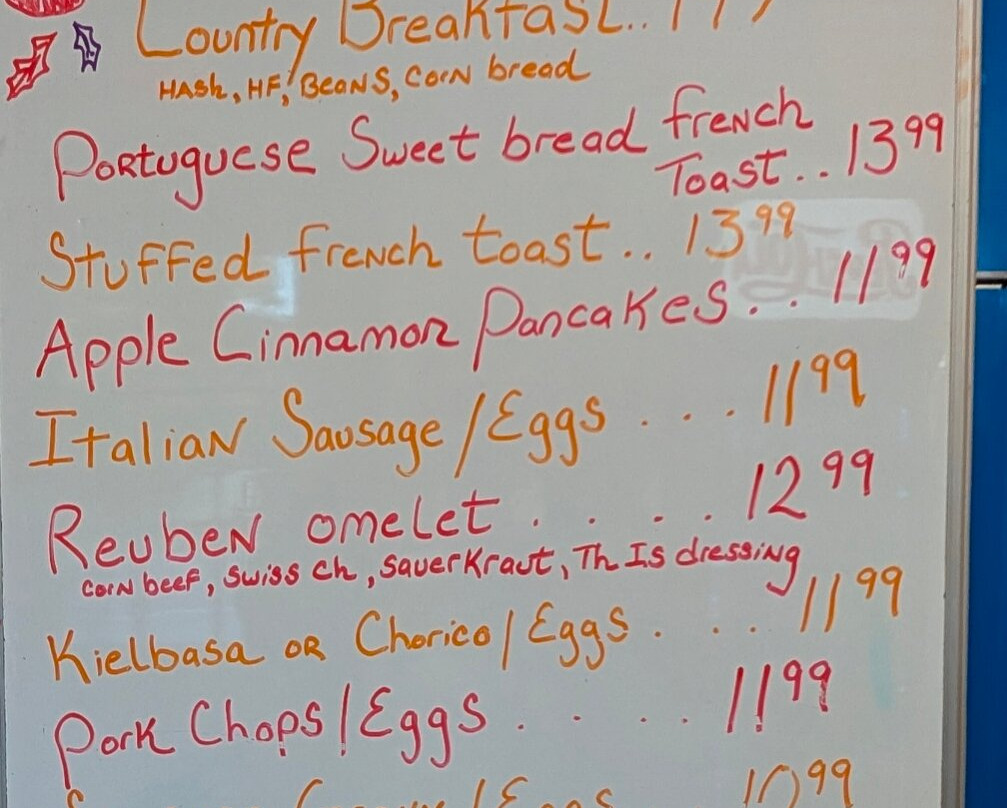 Country Breakfast..
Hash, HF, Beans, Corn bread
Portuguese Sweet bread french
Toast.. 13 99
Stuffed french toast.. 13 99
Apple Cinnamon Pancakes.. 11 99
Italian Sausage/Eggs .... 11 99
Reuben omelet ..... 12 99
corn beef, swiss ch, sauerkraut, Th Is dressing
Kielbasa or Chorico/Eggs .... 11 99
Pork Chops/Eggs ..... 11 99
/Eggs 10 99